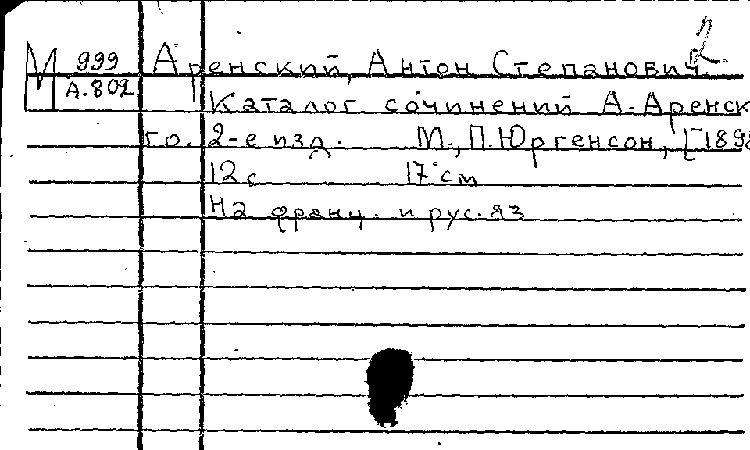 2
М 999 Аренский, Антон Степанович.
А.802 Каталог сочинений А. Аренск
го. 2-е изд. М., П. Юргенсон, [1898
12с 17 см
На франц. и рус. яз